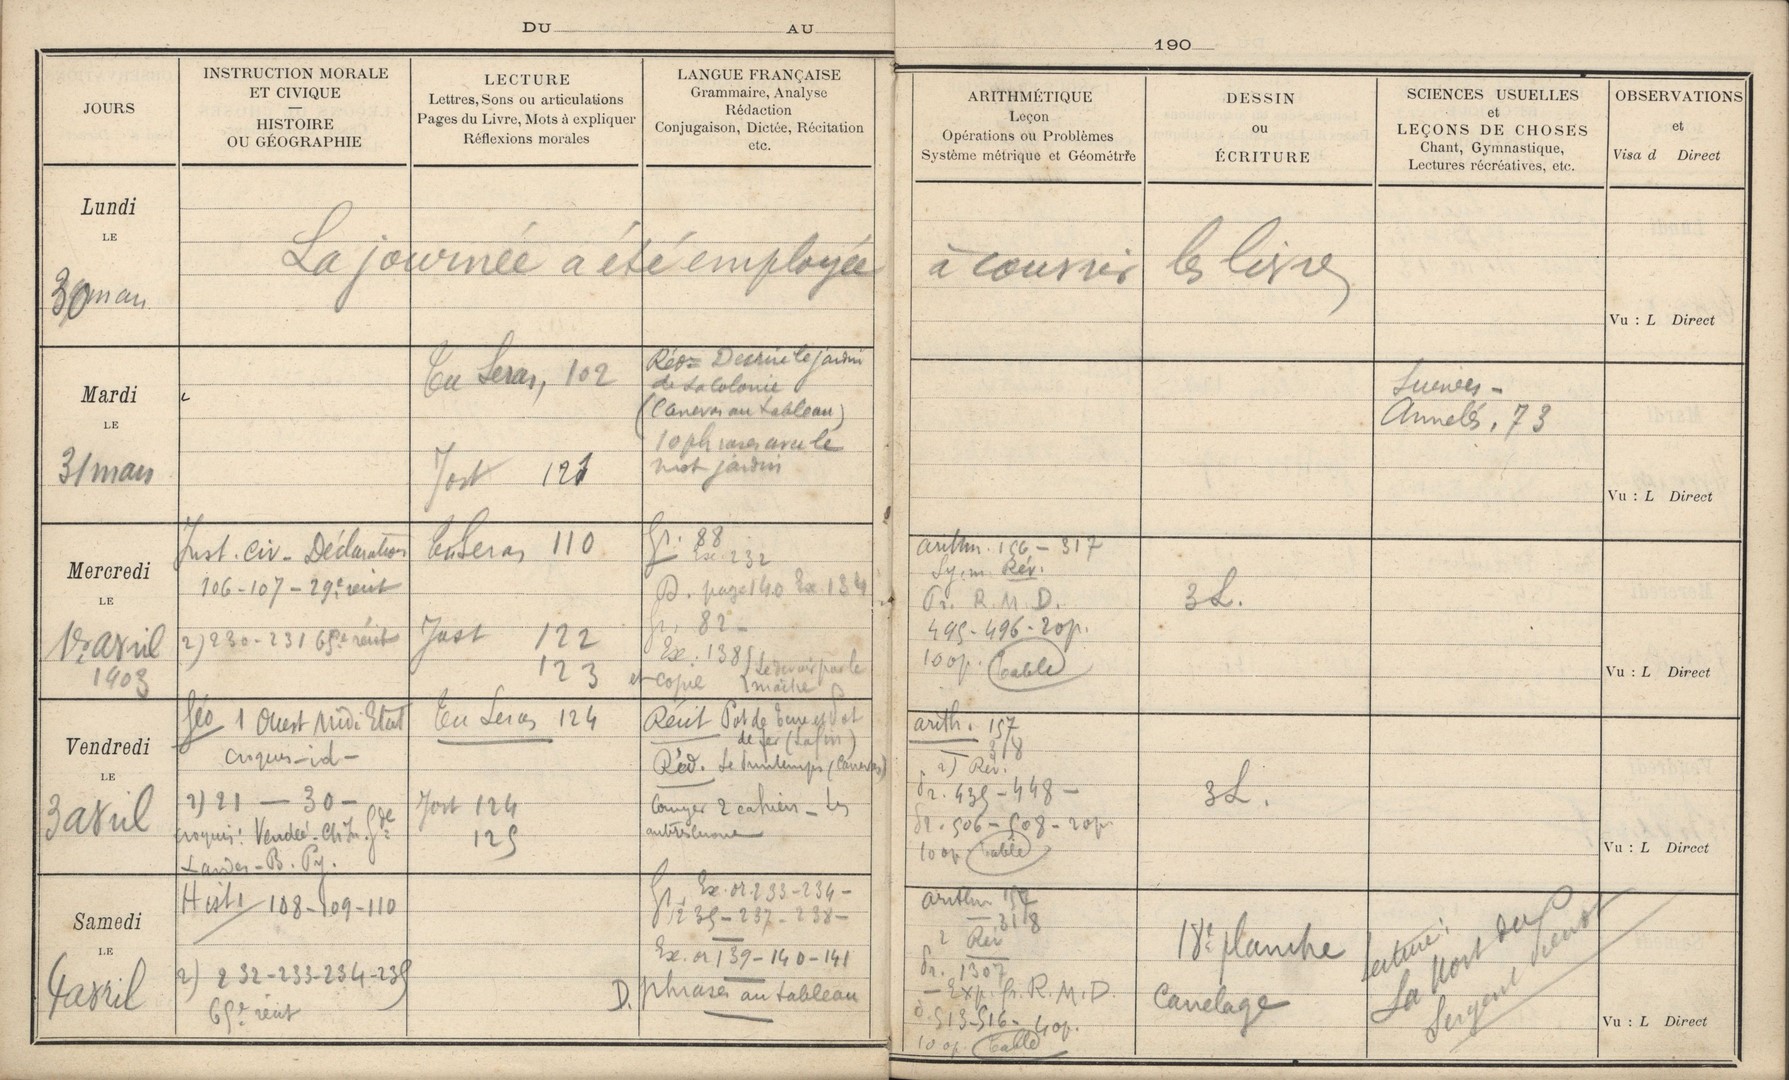 DU
AU
190
JOURS
INSTRUCTION MORALE
ET CIVIQUE
—
HISTOIRE
OU GÉOGRAPHIE
LECTURE
Lettres, Sons ou articulations
Pages du Livre, Mots à expliquer
Réflexions morales
LANGUE FRANÇAISE
Grammaire, Analyse
Rédaction
Conjugaison, Dictée, Récitation
etc.
ARITHMÉTIQUE
Leçon
Opérations ou Problèmes
Système métrique et Géométrie
DESSIN
ou
ÉCRITURE
SCIENCES USUELLES
et
LEÇONS DE CHOSES
Chant, Gymnastique,
Lectures récréatives, etc.
OBSERVATIONS
et
Visa d Direct
Lundi
LE
30 mars
La journée a été employée à couvrir les livres
Vu : L Direct
Mardi
LE
31 mars
Tu Seras, 102
Jost 121
Réd= Décrire le jardin
de la Colonie
(Canevas au tableau)
10 phrases avec le
mot jardin
Sciences -
Annelés, 73
Vu : L Direct
Mercredi
LE
1er avril
1903
Inst. civ - Déclaration
106-107 - 29e récit
2) 230-231 65e récit
Tu Seras 110
Jost 122
123
Gr. 88
Ex. 232
D. page 140 Ex 134
Gr. 82 -
Ex. 138
et copie
Le devoir par le
maître
arithm. 156 - 317
Sy. m. Rév.
Pr. R. M. D.
495-496-20 op.
10 op. Table
3 L.
Vu : L Direct
Vendredi
LE
3 avril
Géo 1 Ouest Midi Etat
croquis - id -
2) 21 - 30 -
croquis: Vendée. Ch. In. Gde
Landes - B. Py.
Tu Seras 124
Jost 124
125
Récit Pot de terre et Pot
de fer (La fin)
Réd. Le Printemps (Canevas)
Corriger 2 cahiers - Les
arith. 157
318
2) Rév.
Pr. 435-448 -
Pr. 506-508-20 op
10 op. Table
3 L.
Vu : L Direct
Samedi
LE
4 avril
Hist. 108-109-110
2) 232-233-234-235
65e récit
Gr. Ex. or. 233-234-
235-237-238-
Ex. or 139-140-141
D. phrases au tableau
arithm 157
- 318
2 Rév
Pr. 1307
- Exp. Gr. R. M. D.
513-516- 40 op.
10 op. Table
18e planche
Canelage
Lecture:
La Mort du
Sergent
Vu : L Direct